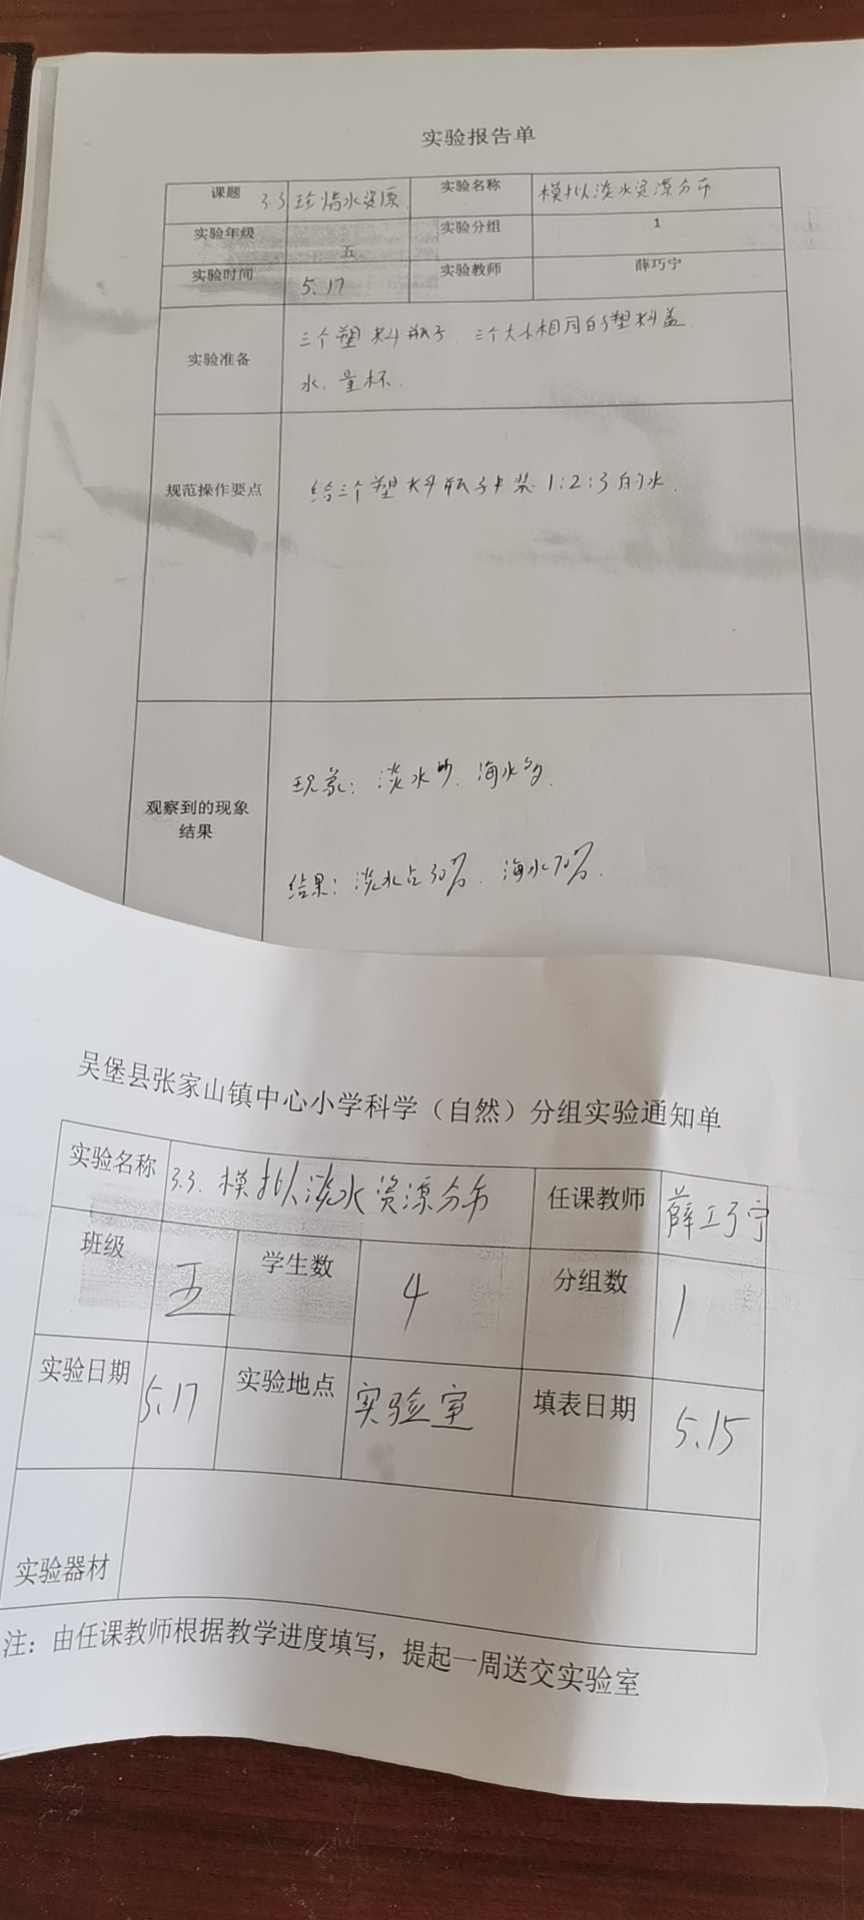 实验报告单
课题 3.3 珍惜水资源 实验名称 模拟淡水资源分布
实验年级 五 实验分组 1
实验时间 5.17 实验教师 薛巧宁
实验准备 三个塑料瓶子. 三个大小相同的塑料盖
水. 量杯.
规范操作要点 给三个塑料瓶子中装 1:2:3 的水.
观察到的现象
结果
现象: 淡水少. 海水多.
结果: 淡水占30%. 海水70%.
吴堡县张家山镇中心小学科学（自然）分组实验通知单
实验名称 3.3. 模拟淡水资源分布 任课教师 薛巧宁
班级 五 学生数 4 分组数 1
实验日期 5.17 实验地点 实验室 填表日期 5.15
实验器材
注：由任课教师根据教学进度填写，提起一周送交实验室